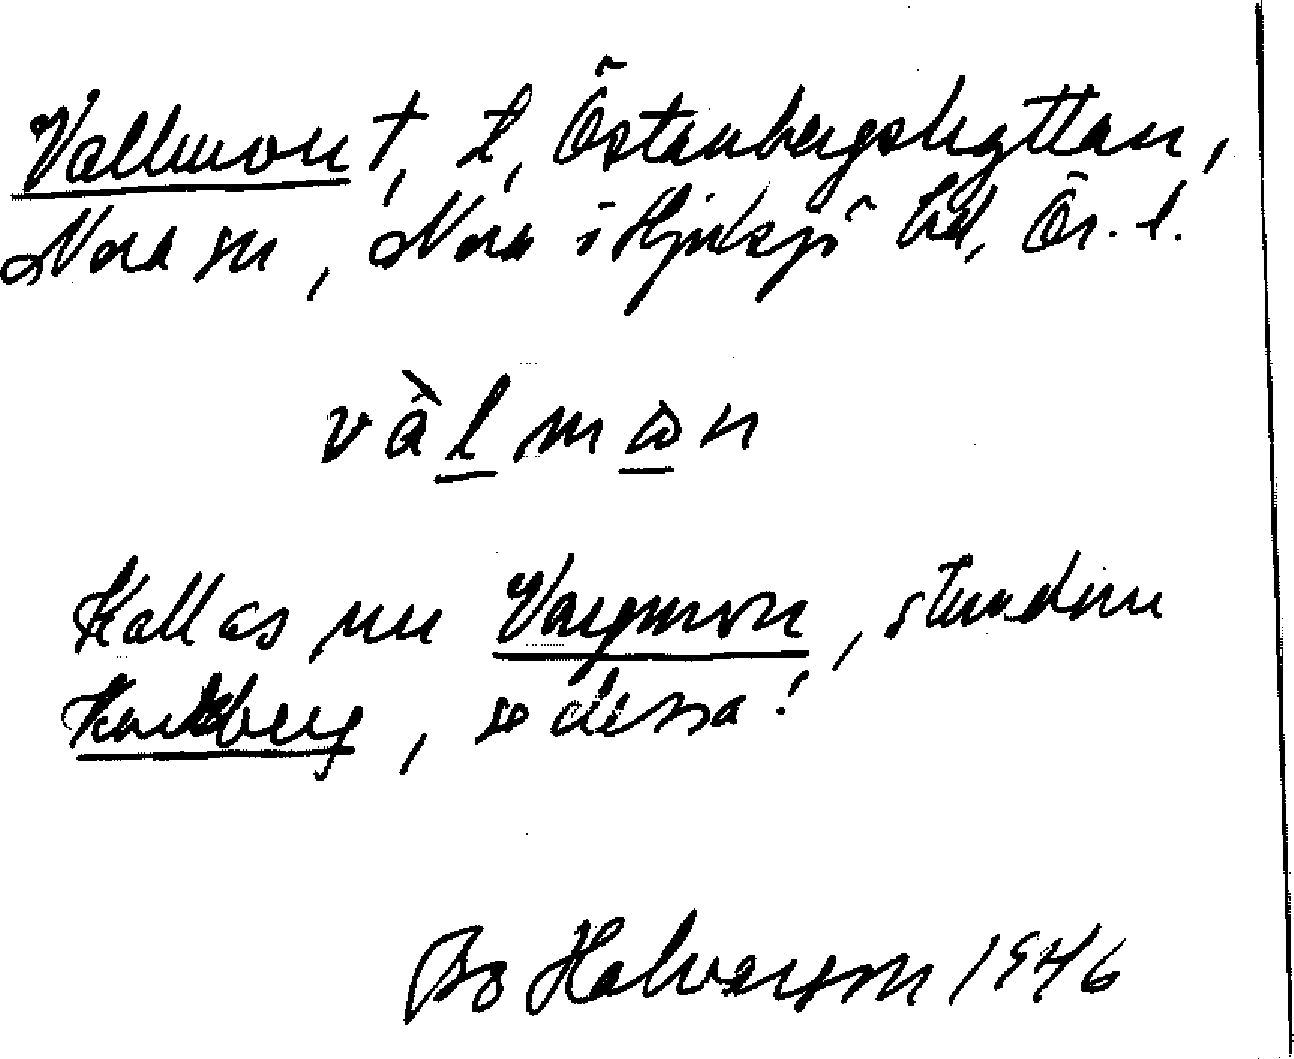 Vallmon †, t, Östanbergshyttan,
Nora sn, Nora i Hjulsjö hd, Ör. l.
vàlmωn
Kallas nu Vargmon, stundom
Korkberg, se dessa!
Bo Halvarson 1946